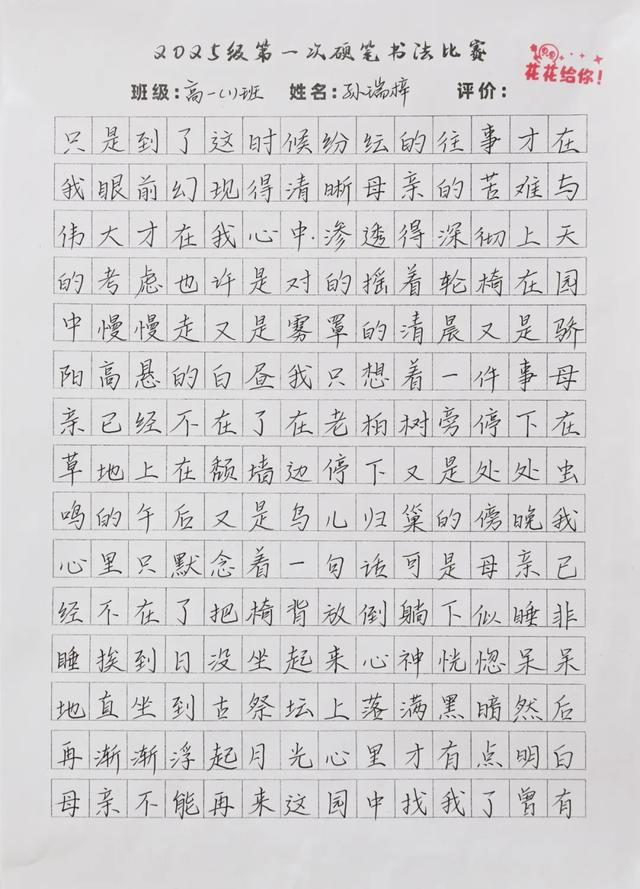 2025级第一次硬笔书法比赛
花花给你!
班级:高一(1)班 姓名:孙瑞梓 评价:
只是到了这时候纷纭的往事才在
我眼前幻现得清晰母亲的苦难与
伟大才在我心中.渗透得深彻上天
的考虑也许是对的摇着轮椅在园
中慢慢走又是雾罩的清晨又是骄
阳高悬的白昼我只想着一件事母
亲已经不在了在老柏树旁停下在
草地上在颓墙边停下又是处处虫
鸣的午后又是鸟儿归巢的傍晚我
心里只默念着一句话可是母亲已
经不在了把椅背放倒躺下似睡非
睡挨到日没坐起来心神恍惚呆呆
地直坐到古祭坛上落满黑暗然后
再渐渐浮起月光心里才有点明白
母亲不能再来这园中找我了曾有